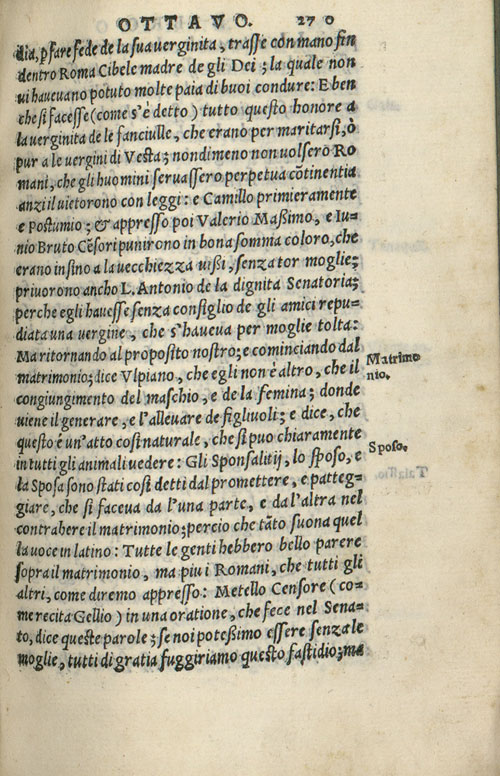 OTTAVO. 270
dia, p fare fede de la sua verginita, trasse con mano fin
dentro Roma Cibele madre de gli Dei; la quale non
vi havevano potuto molte paia di buoi condure: E ben
che si facesse (come s'è detto) tutto questo honore a
la verginita de le fanciulle, che erano per maritarsi, ò
pur a le vergini di Vesta; nondimeno non volsero Ro
mani, che gli huomini servassero perpetua cōtinentia
anzi il vietorono con leggi: e Camillo primieramente
e Postumio; & appresso poi Valerio Massimo, e Iu-
nio Bruto Cēsori punirono in bona somma coloro, che
erano insino a la vecchiezza vissi, senza tor moglie;
privorono ancho L. Antonio de la dignita Senatoria;
perche egli havesse senza consiglio de gli amici repu-
diata una vergine, che s'haveva per moglie tolta:
Ma ritornando al proposito nostro; e cominciando dal
matrimonio; dice Vlpiano, che egli non è altro, che il
congiungimento del maschio, e de la femina; donde
viene il generare, e l'allevare de figlivoli; e dice, che
questo è un'atto cosi naturale, che si puo chiaramente
in tutti gli animali vedere: Gli Sponsalitij, lo sposo, e
la Sposa sono stati cosi detti dal promettere, e patteg-
giare, che si faceva da l'una parte, e da l'altra nel
contrahere il matrimonio; percio che tāto suona quel
la voce in latino: Tutte le genti hebbero bello parere
sopra il matrimonio, ma piu i Romani, che tutti gli
altri, come diremo appresso: Metello Censore (co-
me recita Gellio) in una oratione, che fece nel Sena-
to, dice queste parole; se noi potessimo essere senza le
moglie, tutti di gratia fuggiriamo questo fastidio; ma
Matrimo
nio.
Sposo.